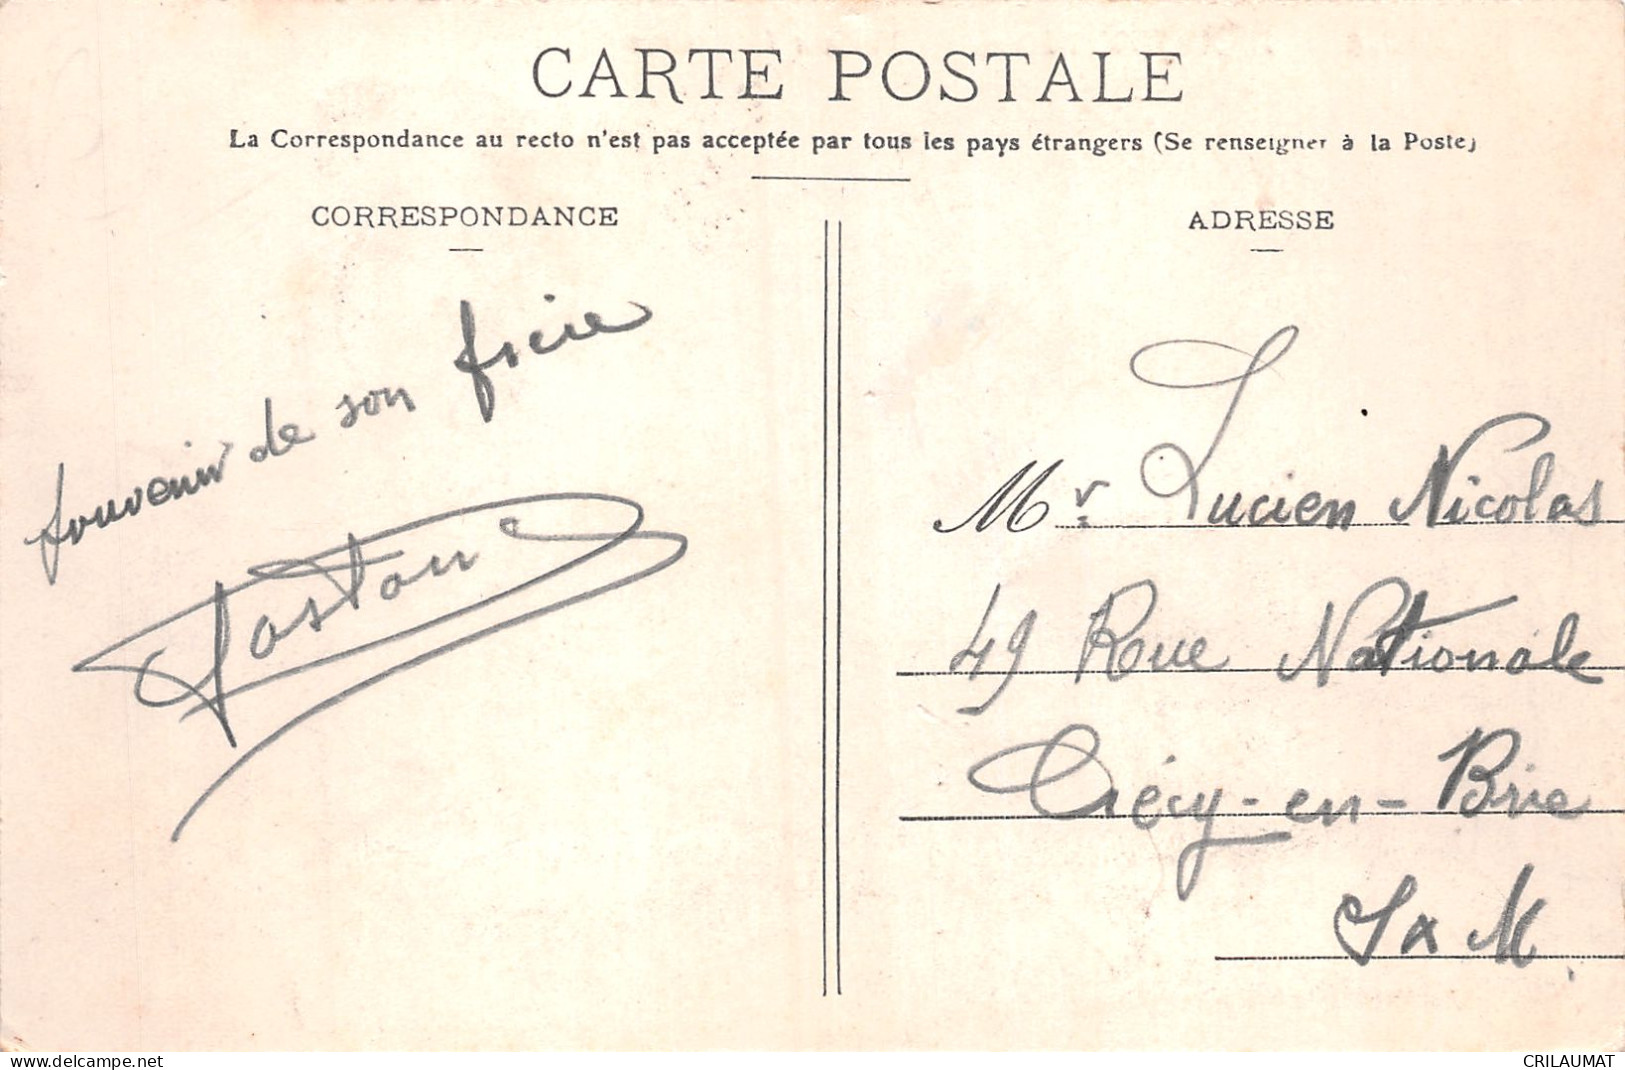 CARTE POSTALE
La Correspondance au recto n'est pas acceptée par tous les pays étrangers (Se renseigner à la Poste)
CORRESPONDANCE
Souvenir de son frère
Gaston
ADRESSE
Mr. Lucien Nicolas
49 Rue Nationale
Crécy-en-Brie
S & M
www.delcampe.net
CRILAUMAT